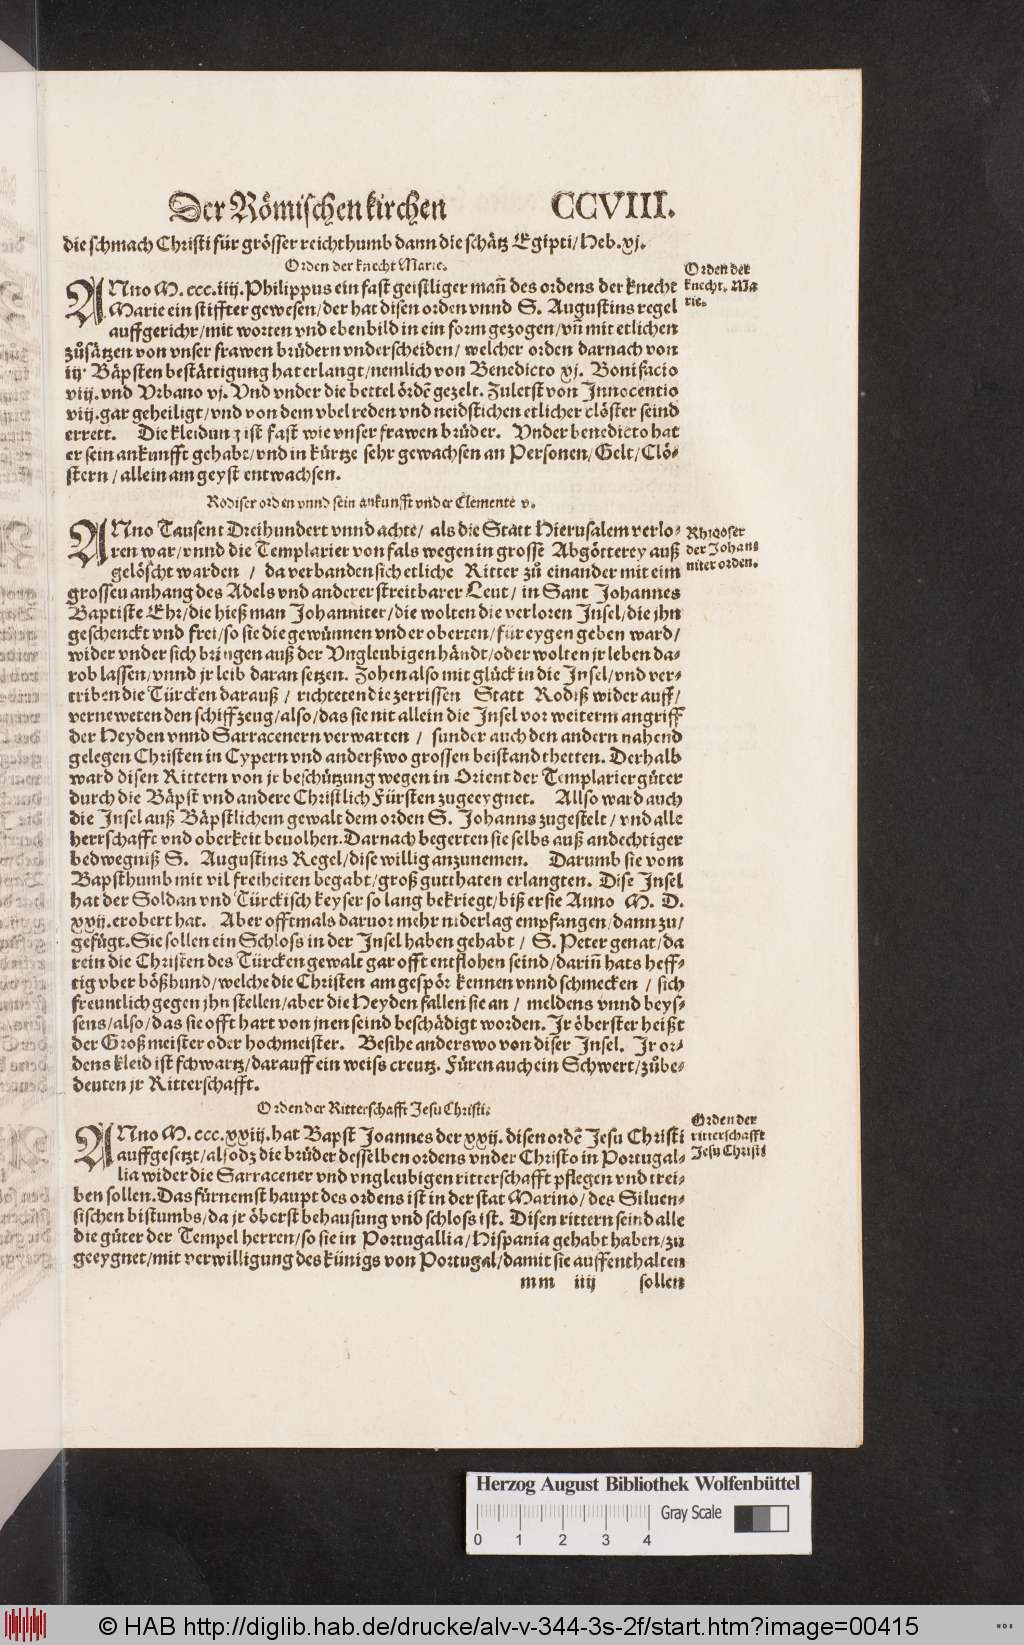 Der Römischen kirchen CCVIII.
die schmach Christi für grösser reichthumb dann die schätz Egipti/ Heb. xj.
Orden der knecht Marie.
Orden der
knecht. Ma
rie.
ANno M. ccc. iiij. Philippus ein fast geistliger mañ des ordens der knecht
Marie ein stiffter gewesen/ der hat disen orden vnnd S. Augustins regel
auffgericht/ mit worten vnd ebenbild in ein form gezogen/ vñ mit etlichen
zůsätzen von vnser frawen brüdern vnderscheiden/ welcher orden darnach von
iij Bäpsten bestättigung hat erlangt/ nemlich von Benedicto xj. Bonifacio
viij. vnd Vrbano vj. Vnd vnder die bettel ördē gezelt. Zuletst von Innocentio
viij. gar geheiligt/ vnd von dem vbel reden vnd neidstichen etlicher clöster seind
errett. Die kleidung ist fast wie vnser frawen brüder. Vnder benedicto hat
er sein ankunfft gehabt/ vnd in kürtze sehr gewachsen an Personen/ Gelt/ Clö-
stern/ allein am geyst entwachsen.
Rodiser orden vnnd sein ankunfft vnder Clemente v.
Rhodoser
der Johans
niter orden.
ANno Tausent Dreihundert vnnd achte/ als die Statt Hierusalem verlo-
ren war/ vnnd die Templarier von fals wegen in grosse Abgötterey auß
gelöscht warden/ da verbanden sich etliche Ritter zů einander mit eim
grossen anhang des Adels vnd anderer streitbarer Leut/ in Sant Johannes
Baptiste Ehr/ die hieß man Johanniter/ die wolten die verloren Insel/ die jhn
geschenckt vnd frei/ so sie die gewünnen vnder oberten/ für eygen geben ward/
wider vnder sich bringen auß der Vngleubigen händt/ oder wolten jr leben da-
rob lassen/ vnnd jr leib daran setzen. Zohen also mit glück in die Insel/ vnd ver-
triben die Türcken darauß/ richteten die zerrissen Statt Rodiß wider auff/
verneweten den schiffzeug/ also/ das sie nit allein die Insel vor weiterm angriff
der Heyden vnnd Sarracenern verwarten/ sunder auch den andern nahend
gelegen Christen in Cypern vnd anderßwo grossen beistand thetten. Derhalb
ward disen Rittern von jr beschützung wegen in Orient der Templarier güter
durch die Bäpst vnd andere Christlich Fürsten zugeeygnet. Allso ward auch
die Insel auß Bäpstlichem gewalt dem orden S. Johanns zugestelt/ vnd alle
herrschafft vnd oberkeit beuolhen. Darnach begerten sie selbs auß andechtiger
bedwegniß S. Augustins Regel/ dise willig anzunemen. Darumb sie vom
Bapsthumb mit vil freiheiten begabt/ groß gutthaten erlangten. Dise Insel
hat der Soldan vnd Türckisch keyser so lang bekriegt/ biß er sie Anno M. D.
xxij. erobert hat. Aber offtmals daruor mehr niderlag empfangen/ dann zu/
gefügt. Sie sollen ein Schloss in der Insel haben gehabt/ S. Peter genat/ da
rein die Christen des Türcken gewalt gar offt entflohen seind/ dariñ hats heff-
tig vber bößhund/ welche die Christen am gespör kennen vnnd schmecken/ sich
freuntlich gegen jhn stellen/ aber die Heyden fallen sie an/ meldens vnnd beys-
sens/ also/ das sie offt hart von jnen seind beschädigt worden. Ir öberster heißt
der Großmeister oder hochmeister. Besihe anderswo von diser Insel. Ir or-
dens kleid ist schwartz/ darauff ein weiss creutz. Füren auch ein Schwert/ zůbe-
deuten jr Ritterschafft.
Orden der Ritterschafft Jesu Christi.
Orden der
ritterschafft
Jesu Christi
ANno M. ccc. xxiij. hat Bapst Joannes der xxij. disen ordē Jesu Christi
auffgesetzt/ also dz die brüder desselben ordens vnder Christo in Portugal-
lia wider die Sarracener vnd vngleubigen ritterschafft pflegen vnd trei-
ben sollen. Das fürnemst haupt des ordens ist in der stat Marino/ des Siluen-
sischen bistumbs/ da jr öberst behausung vnd schloss ist. Disen rittern seind alle
die güter der Tempel herren/ so sie in Portugallia/ Hispania gehabt haben/ zu
geeygnet/ mit verwilligung des künigs von Portugal/ damit sie auffenthalten
mm iiij sollen
Herzog August Bibliothek Wolfenbüttel
Gray Scale
0 1 2 3 4
© HAB http://diglib.hab.de/drucke/alv-v-344-3s-2f/start.htm?image=00415